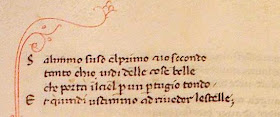 Salimmo suso elprimo ⁊ io secondo
tanto chio uidi delle cose belle
che porta ilciel ꝑ un ꝑtugio tondo·
Et quindi uscimmo ad riueder lestelle·